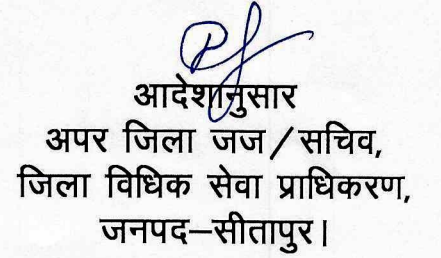 आदेशानुसार
अपर जिला जज/सचिव,
जिला विधिक सेवा प्राधिकरण,
जनपद–सीतापुर।